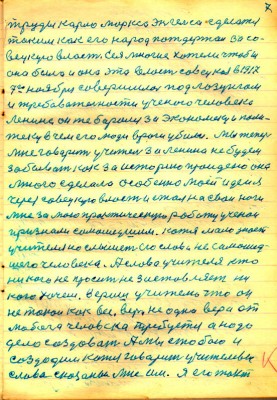 7
труды карло маркса энгелса сделати
таким как его народ поддержал за со-
вецкую власть. Ся многие хотели чтобы
она была и она эта власть совецкая в 1917
7го ноября совершилась под лозунгам
и требавательности ученого человека
Ленина он те барони за Экономеку и поли-
теку в чем его люди враги убили. Мы тепер
мне говарит учител за Ленина не будем
забыват как за историю пройдено она
много сделала особенно моей идеия
через совецкую власть и стал на свои ноги
мне за мою практическую работу ученои
признали самашедшим. Хотя мало знает
учител но слышет его слова не самашед-
шего человека. А слово учителя кто
никого не просит не заставляет ни
кого ничем. Верим учитель что он
не такой как все, верь не одна вера от
любого человека требуется а надо
дело создоват. А мы с тобою и
создодим хотел говарит учительски
слова сказаны мне им. Я его такт
К